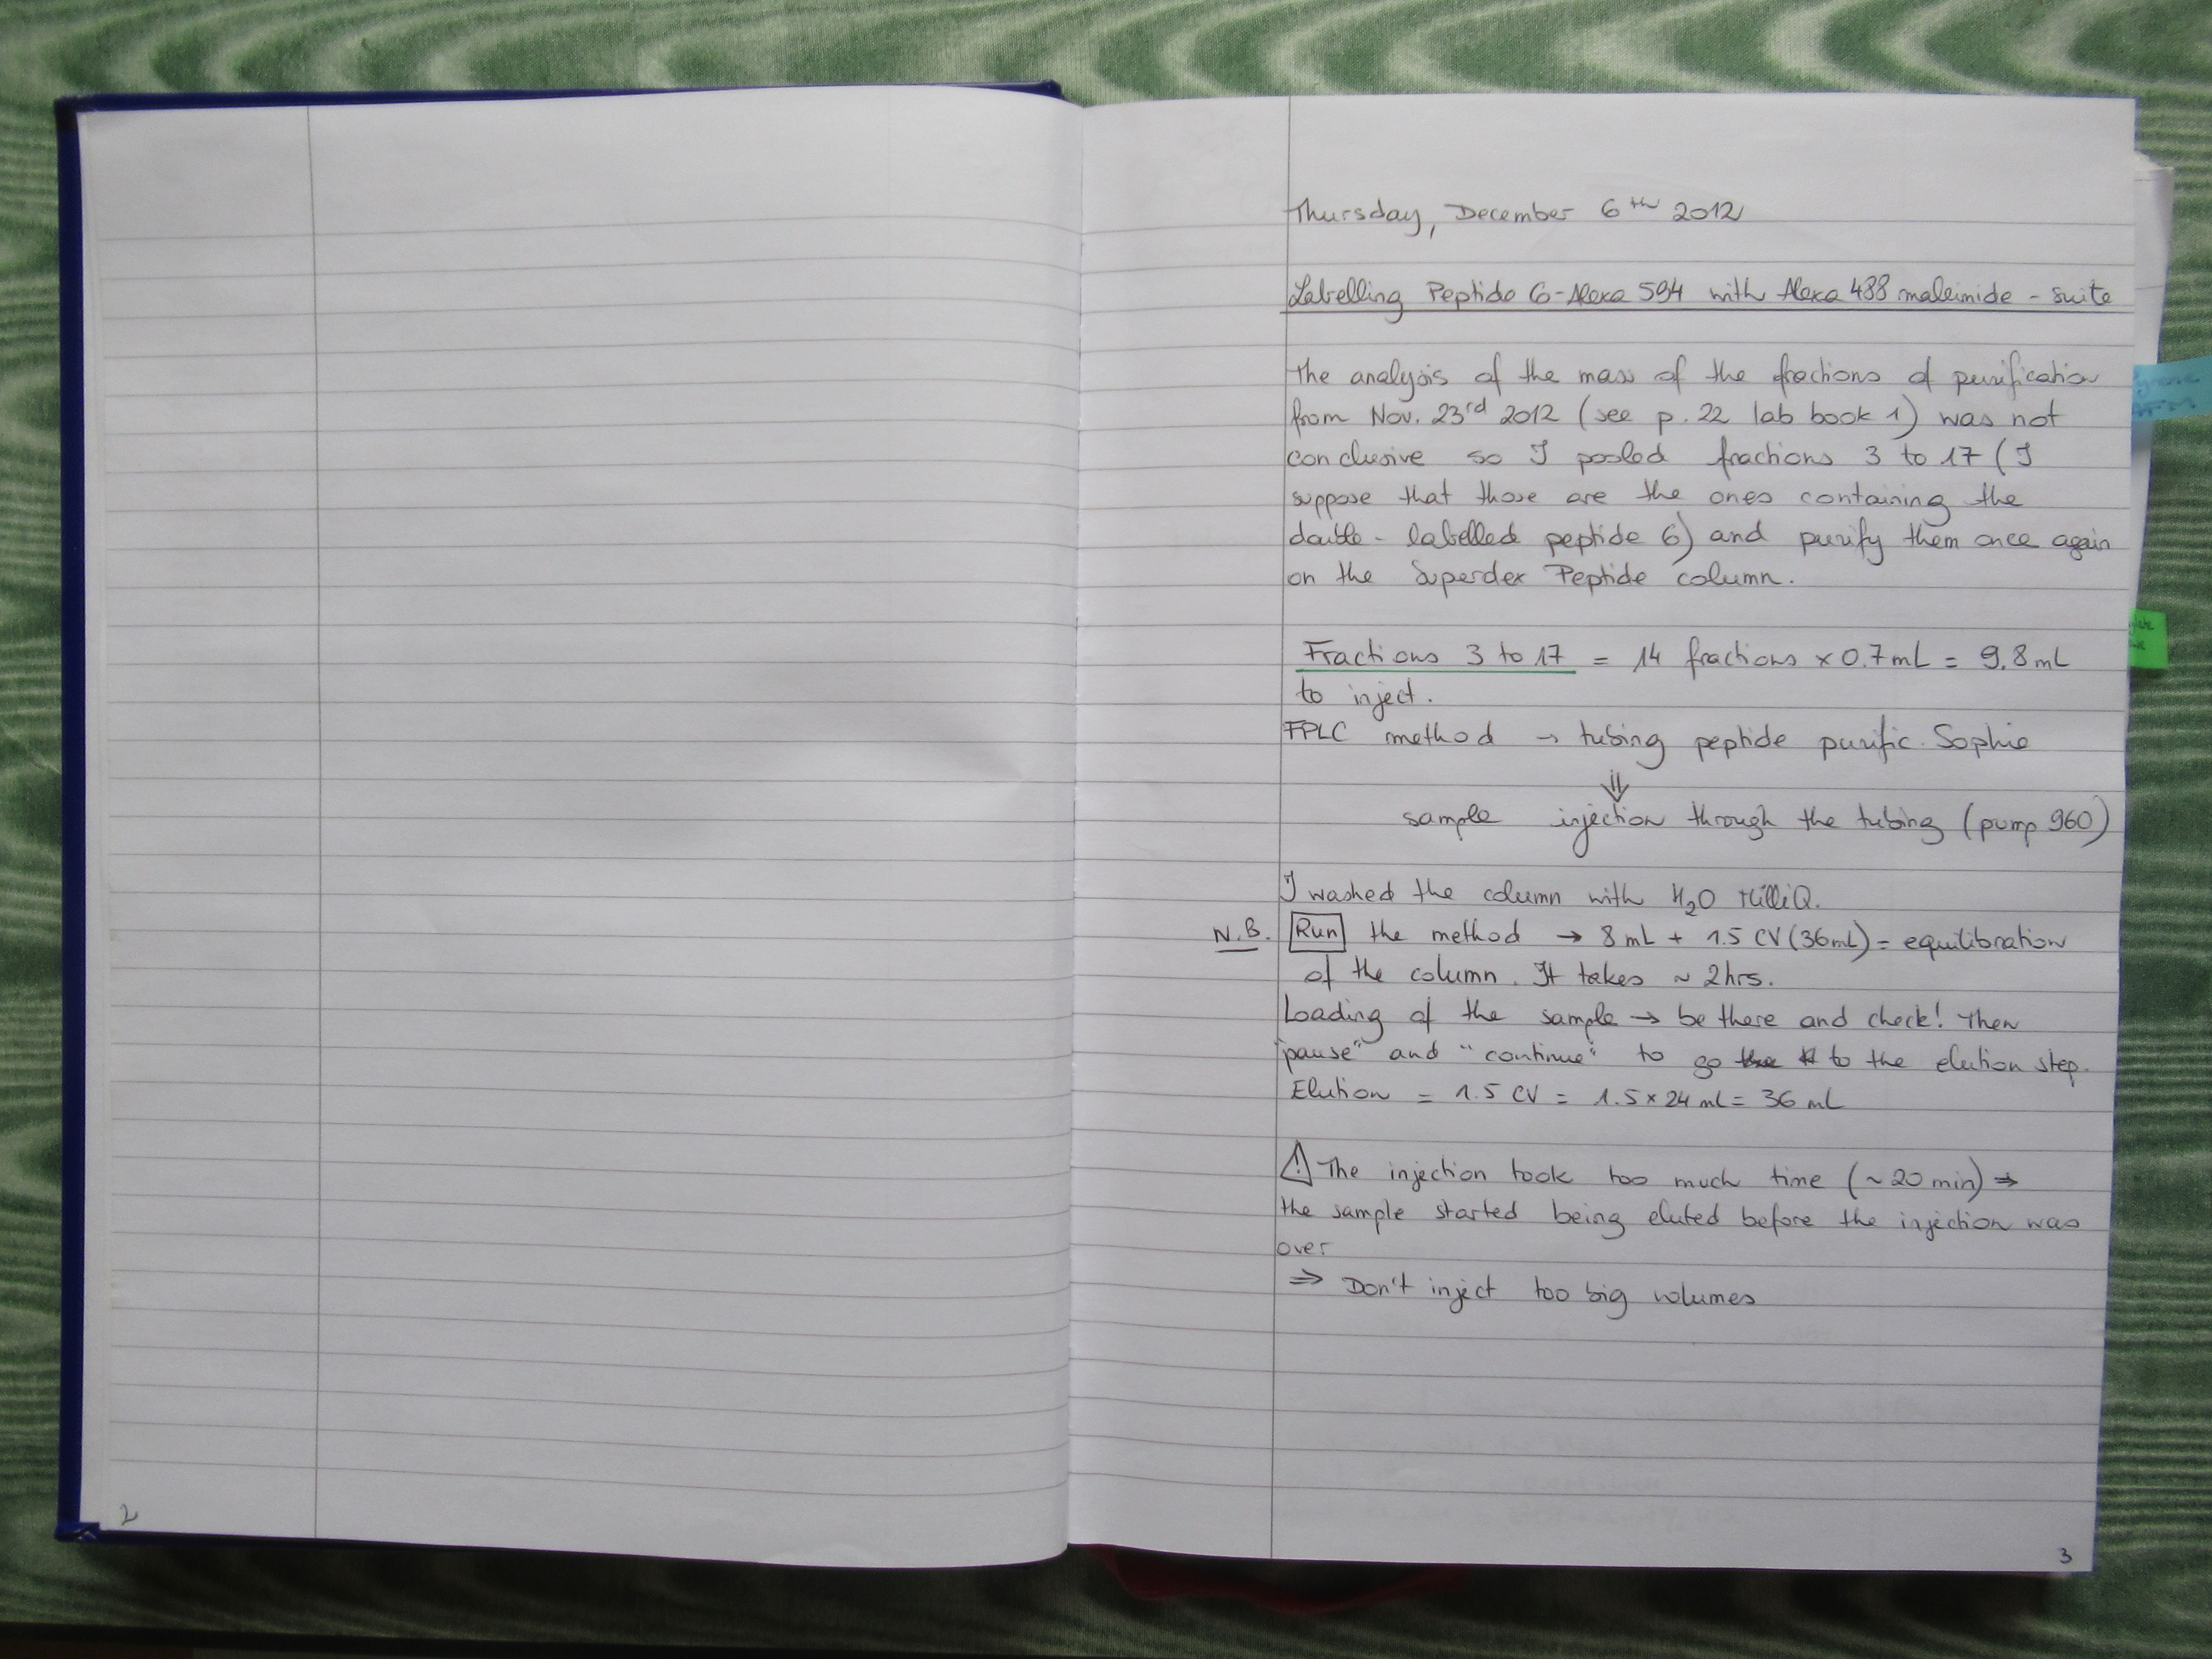 Thursday, December 6th 2012
Labelling Peptide 6-Alexa 594 with Alexa 488 maleimide - suite
The analysis of the mass of the fractions of purification
from Nov. 23rd 2012 (see p. 22 lab book 1) was not
conclusive so I pooled fractions 3 to 17 (I
suppose that those are the ones containing the
double-labelled peptide 6) and purify them once again
on the Superdex Peptide column.
Fractions 3 to 17 = 14 fractions x 0.7 mL = 9.8 mL
to inject.
FPLC method → tubing peptide purific. Sophie
⇓
sample injection through the tubing (pump 960)
I washed the column with H2O MilliQ.
N.B. Run the method → 8 mL + 1.5 CV (36 mL) = equilibration
of the column. It takes ~ 2hrs.
Loading of the sample → be there and check! Then
"pause" and "continue" to go to the elution step.
Elution = 1.5 CV = 1.5 x 24 mL = 36 mL
⚠ The injection took too much time (~ 20 min) ⇒
the sample started being eluted before the injection was
over
⇒ Don't inject too big volumes
2
3